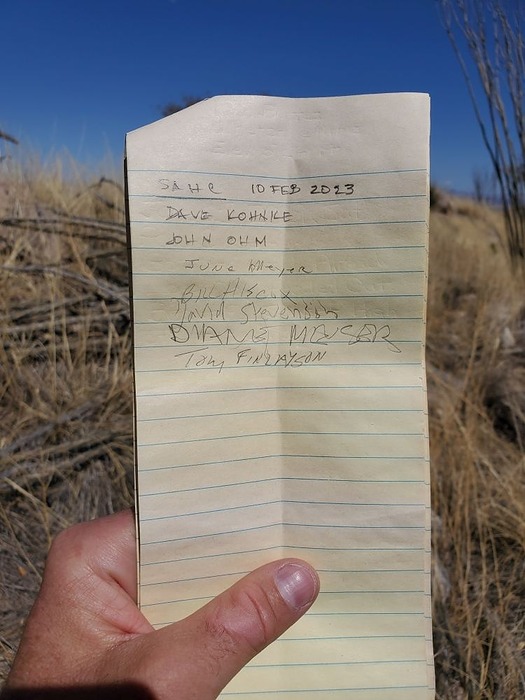 SAHC 10 FEB 2023
DAVE KOHNKE
JOHN OHM
June Meyer
Bill Hiscox
David Stevenson
DIANE MEUSER
Tom FINLAYSON